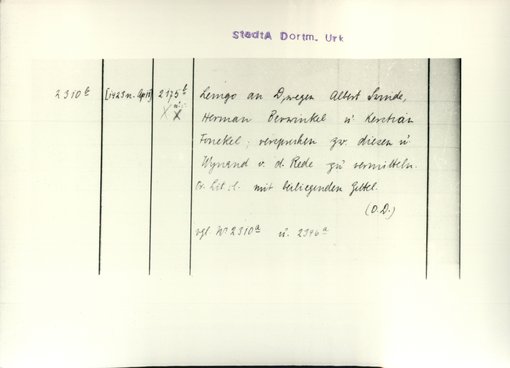 StadtA Dortm. Urk
2310b [1423 n. Apr 11] 2175b Lemgo an D, wegen Albert Swide,
Herman Berwinkel u Kerstian
Fonekel; versprechen zw. diesen u
Wynand v. d. Rede zu vermitteln.
Or. Lit. cl. mit beiliegenden Zettel.
(O.D.)
vgl. Nr 2310a u. 2346a